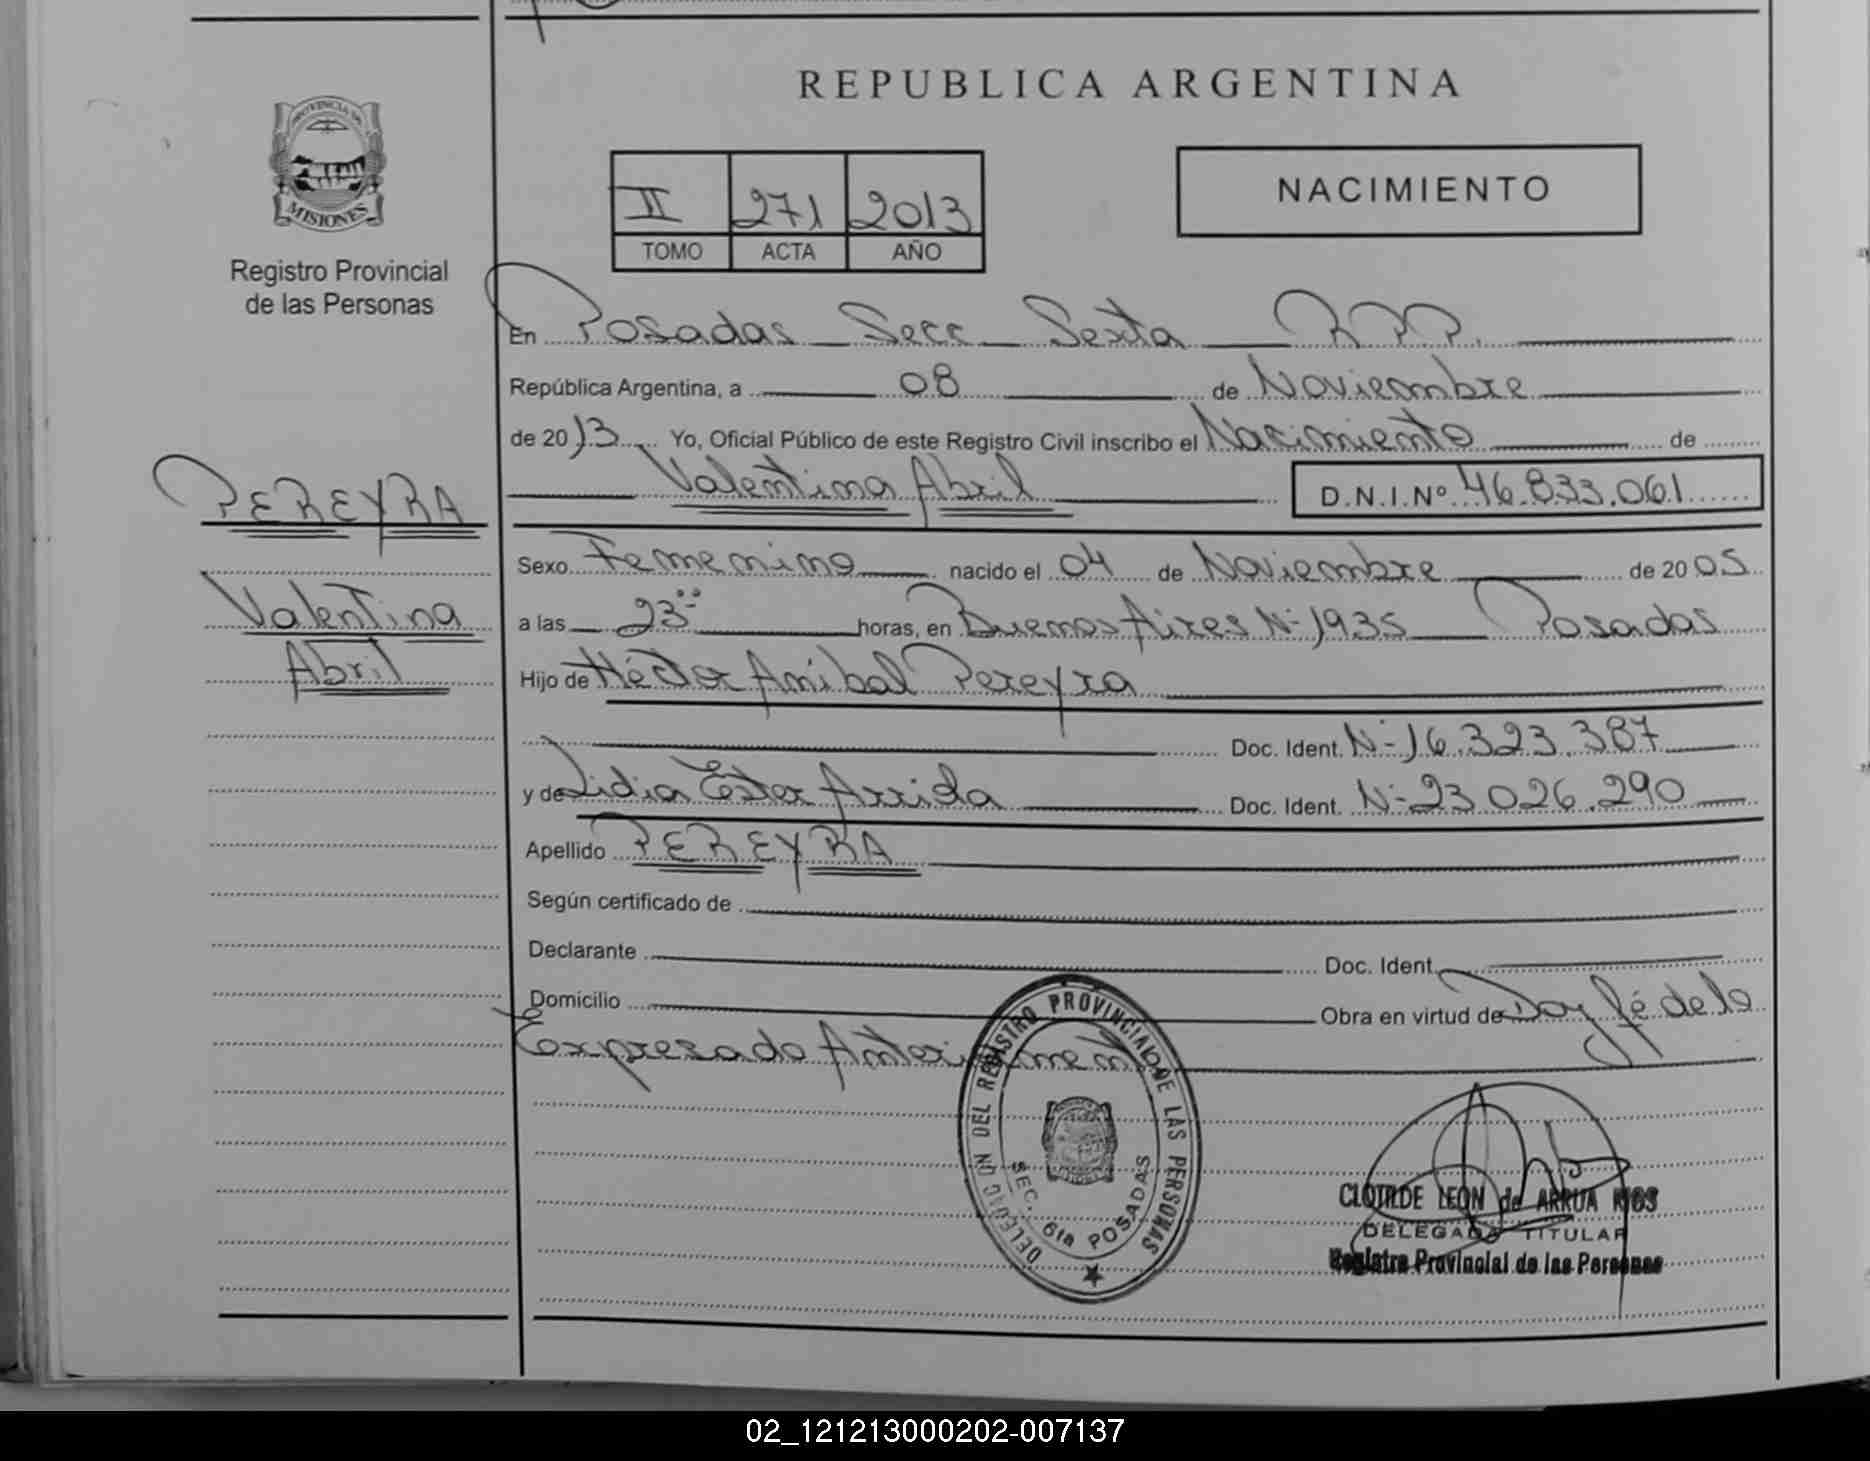 REPUBLICA ARGENTINA
PROVINCIA DE
MISIONES
Registro Provincial
de las Personas
II 271 2013
TOMO ACTA AÑO
NACIMIENTO
En Posadas Secc Sexta R.P.P.
República Argentina, a 08 de Noviembre
de 2013 Yo, Oficial Público de este Registro Civil inscribo el Nacimiento de
PEREYRA
Valentina Abril D.N.I.Nº 46.833.061
Sexo Femenino nacido el 04 de Noviembre de 2005
Valentina
Abril
a las 23:00 horas, en Buenos Aires Nº 1935 Posadas
Hijo de Héctor Aníbal Pereyra
Doc. Ident. Nº 16.323.387
y de Lidia Ester Arrida Doc. Ident. Nº 23.026.290
Apellido PEREYRA
Según certificado de
Declarante Doc. Ident.
Domicilio Obra en virtud de Doy fé de lo
Expresado Anteriormente
DELEGACION DEL REGISTRO PROVINCIAL DE LAS PERSONAS
SEC. 6ta POSADAS
CLOTILDE LEON de ARRUA RIOS
DELEGADA TITULAR
Registro Provincial de las Personas
02_121213000202-007137